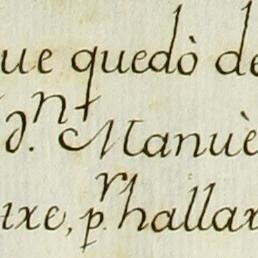 ue quedò de
d.ⁿ Manuè
uxe, p.ʳ hallar